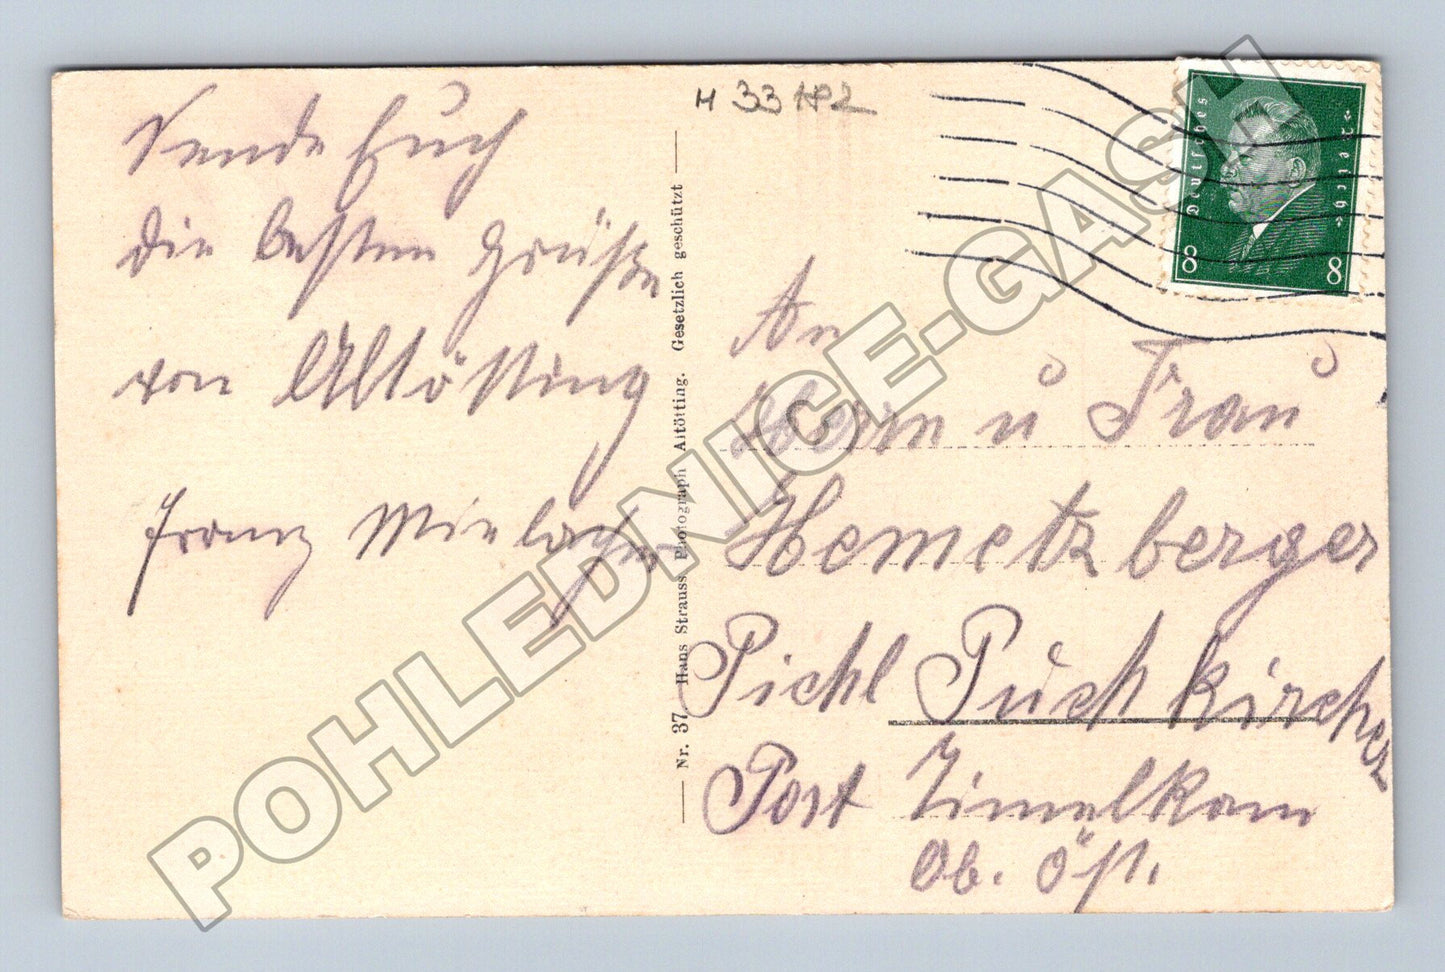 Sende Euch
die besten Grüße
von Altötting
Franz
H 33
Nr. 37 Hans Strauss, Photograph Altötting. Gesetzlich geschützt
Deutsches Reich
8 8
An
Herrn u Frau
Hemetzberger
Pichl Puchkirchen
Post Timelkam
Ob. Öst.
POHLEDNICE-GASH